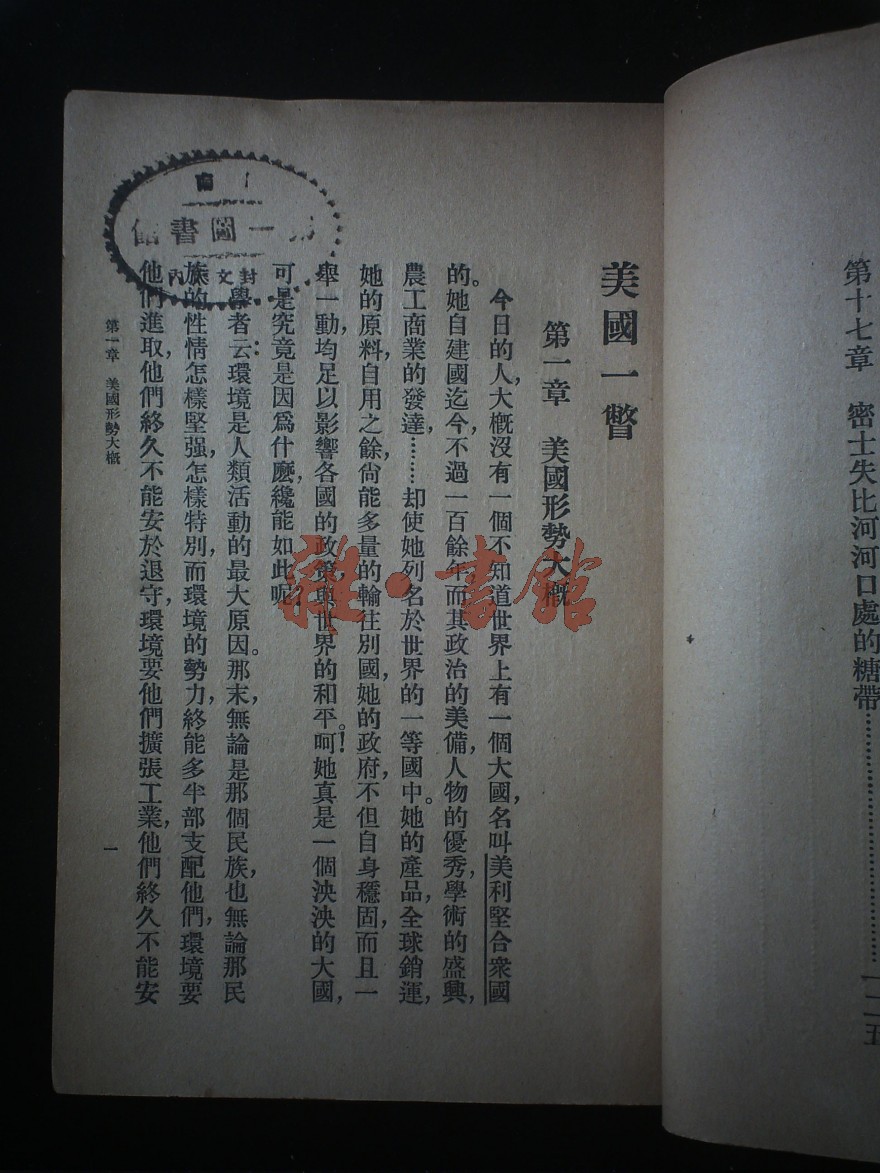 第十七章　密士失比河河口處的糖帶…………………一二五
美國一瞥
第一章　美國形勢大概
今日的人，大概沒有一個不知道世界上有一個大國，名叫美利堅合衆國
的。她自建國迄今，不過一百餘年，而其政治的美備，人物的優秀，學術的盛興，
農工商業的發達，………却使她列名於世界的一等國中。她的產品，全球銷運，
她的原料，自用之餘，尙能多量的輸往別國，她的政府，不但自身穩固，而且一
舉一動，均足以影響各國的政策，與世界的和平。呵！她真是一個泱泱的大國，
可是究竟是因爲什麽，纔能如此呢？
學者云：環境是人類活動的最大原因。那末，無論是那個民族，也無論那民
族的性情怎樣堅强，怎樣特別，而環境的勢力，終能多半部支配他們，環境要
他們進取，他們終久不能安於退守，環境要他們擴張工業，他們終久不能安
第一章　美國形勢大概
一
一圖書館
封文內
雜·書館